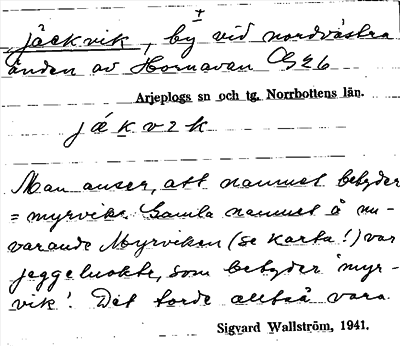 +
jäckvik, by vid nordvästra
änden av Hornavan G26
Arjeplogs sn och tg, Norrbottens län.
jǽkvık
Man anser, att namnet betyder
= myrvik. Gamla namnet å nu-
varande Myrviken (se karta!) var
jeggeluokte, som betyder 'myr-
vik'. Det torde alltså vara
Sigvard Wallström, 1941.